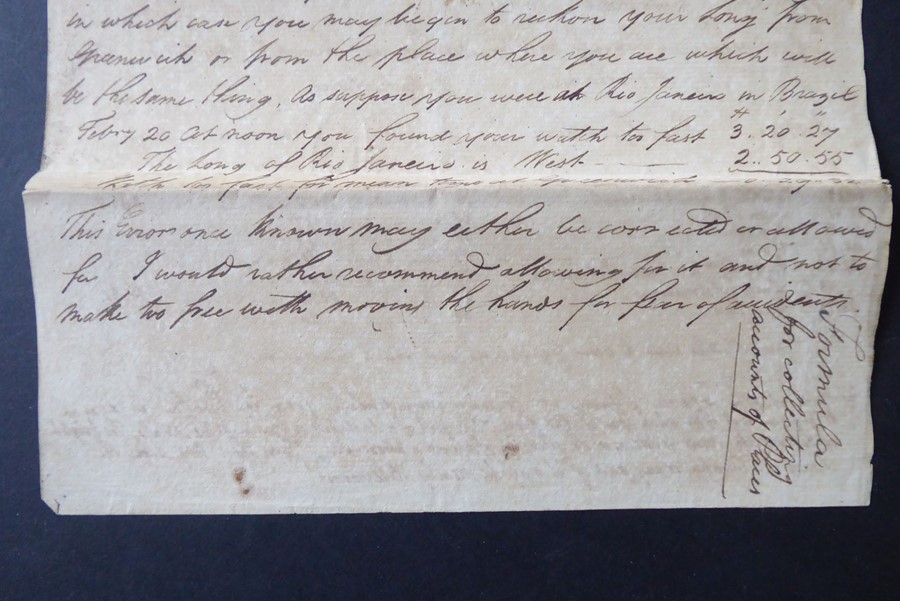 in which case you may begin to reckon your Long from
Greenwich or from the place where you are which will
be the same thing. As suppose you were at Rio Janeiro in Brazil
Febry 20 at noon you found your watch too fast H 3. 20' . 27"
The Long of Rio Janeiro is West 2.. 50. 55
both too fast for mean time at Greenwich
This Error once known may either be corrected or allowed
for I would rather recommend allowing for it and not to
make too free with moving the hands for fear of accidents
Formula
for collecting
accounts of